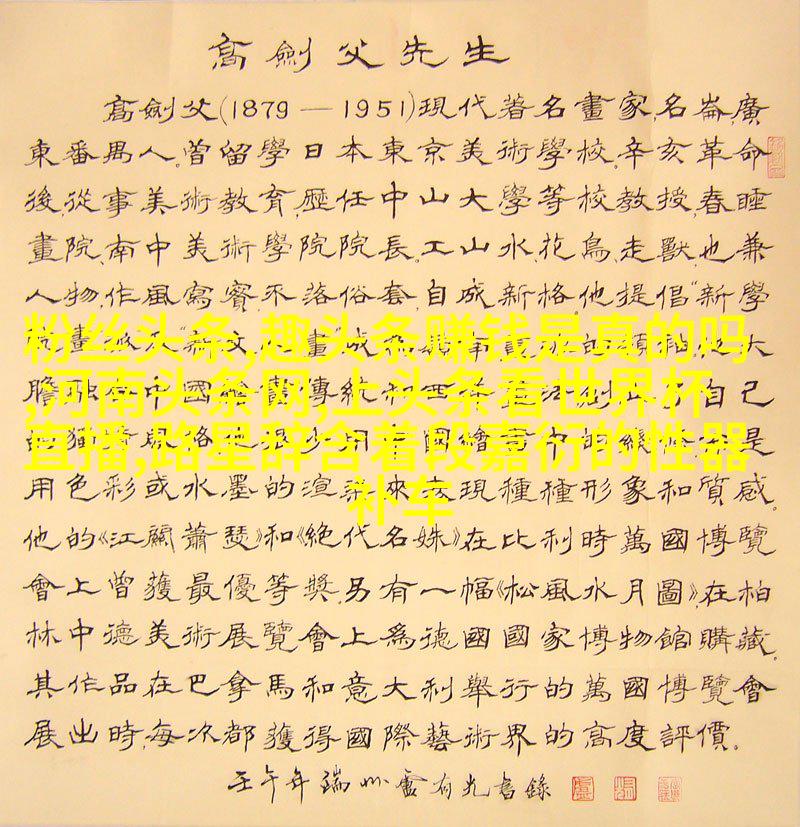 高劍父先生
高劍父(1879—1951)現代著名畫家,名崙,廣
東番禺人。曾留學日本東京美術學校,辛亥革命
後,從事美術教育,歷任中山大學等校教授,春睡
畫院、南中美術學院院長。工山水、花鳥、走獸,也兼
人物,作風寫實,不落俗套,自成新格。他提倡“新學
粉丝头条,趣头条赚钱是真的吗
,河南头条网,上头条看世界杯
直播,路星辞含着段嘉衍的性器
补车
用色彩或水墨的渲染來表現種種形象和質感。
他的《江關蕭瑟》和《絕代名姝》在比利時萬國博覽
會上曾獲最優等獎。另有一幅《松風水月圖》,在柏
林中德美術展覽會上為德國國家博物館購藏。
其作品在巴拿馬和意大利舉行的萬國博覽會
展出時,每次都獲得國際藝術界的高度評價。
壬午年端州盧有光書錄